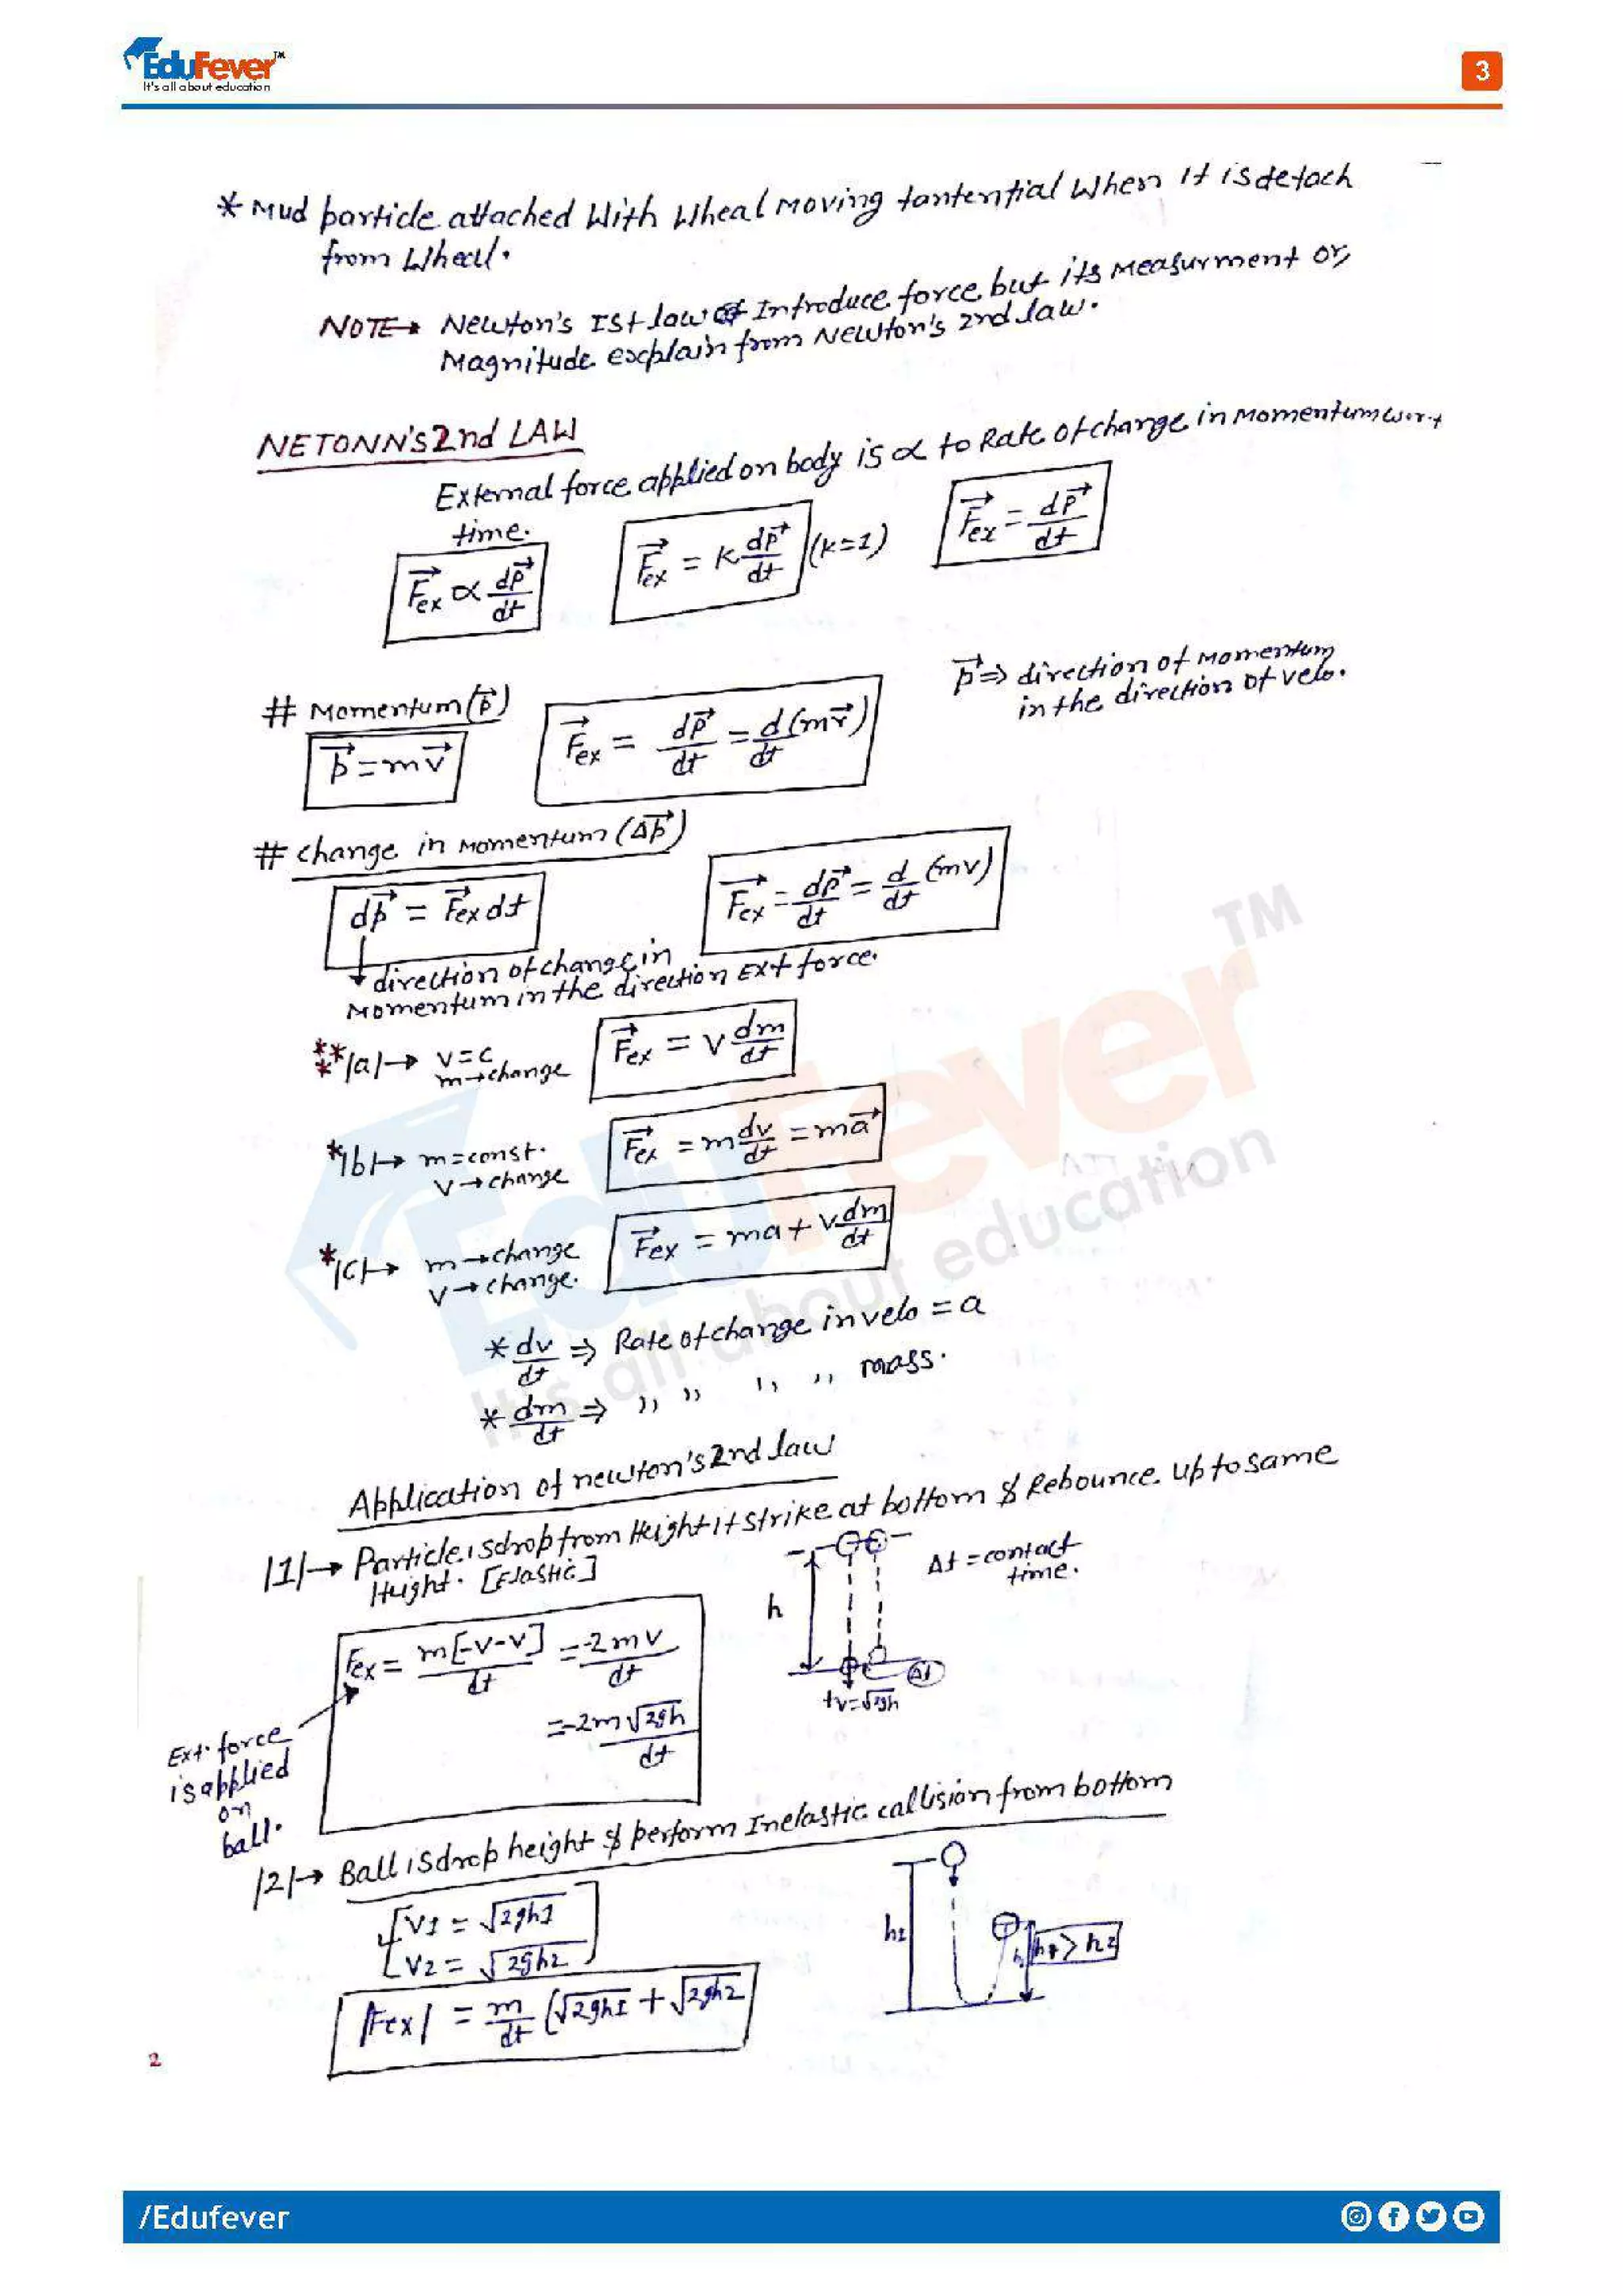 EduFever™
It's all about education
3
* Mud particle attached With Wheal Moving tantential When it is detach
from Wheel.
NOTE→ Newton's Ist law Introduce force but its Measurment or,
Magnitude explain from Newton's 2nd law.
NETONN'S 2nd LAW
External force applied on body is ∝ to Rate of change in Momentum w.r.t
time.
F⃗ex ∝ dp⃗/dt
F⃗ex = K dp⃗/dt (k=1)
F⃗ex = dp⃗/dt
# Momentum (p⃗)
p⃗ ⇒ direction of Momentum
in the direction of velo.
p⃗ = mv⃗
F⃗ex = dp⃗/dt = d/dt (mv⃗)
# change in Momentum (Δp⃗)
dp⃗ = F⃗ex dt
F⃗ex = dp⃗/dt = d/dt (mv)
direction of change in
Momentum in the direction Ext force.
***|a|→ v = c
m→change
F⃗ex = v dm/dt
*|b|→ m = const.
v → change
F⃗ex = m dv/dt = ma⃗
*|c|→ m → change
v → change.
F⃗ex = ma + v dm/dt
* dv/dt ⇒ Rate of change in velo = a
* dm/dt ⇒ ,, ,, ,, ,, mass.
Application of newton's 2nd law
|1|→ Particle is drop from Height it strike at bottom & Rebounce up to same
Height. [Elastic]
Δt = contact
time.
h
Fex = m[-v-v]/dt = -2mv/dt
= -2m√2gh/dt
Δt
+v=√2gh
Ext. force
is applied
on
ball.
|2|→ Ball is drop height & perform Inelastic callision from bottom
[v1 = √2gh1
v2 = √2gh2]
h1
h1 > h2
|Fex| = m/dt (√2gh1 + √2gh2
2
EduFever™
It's all about education
/Edufever